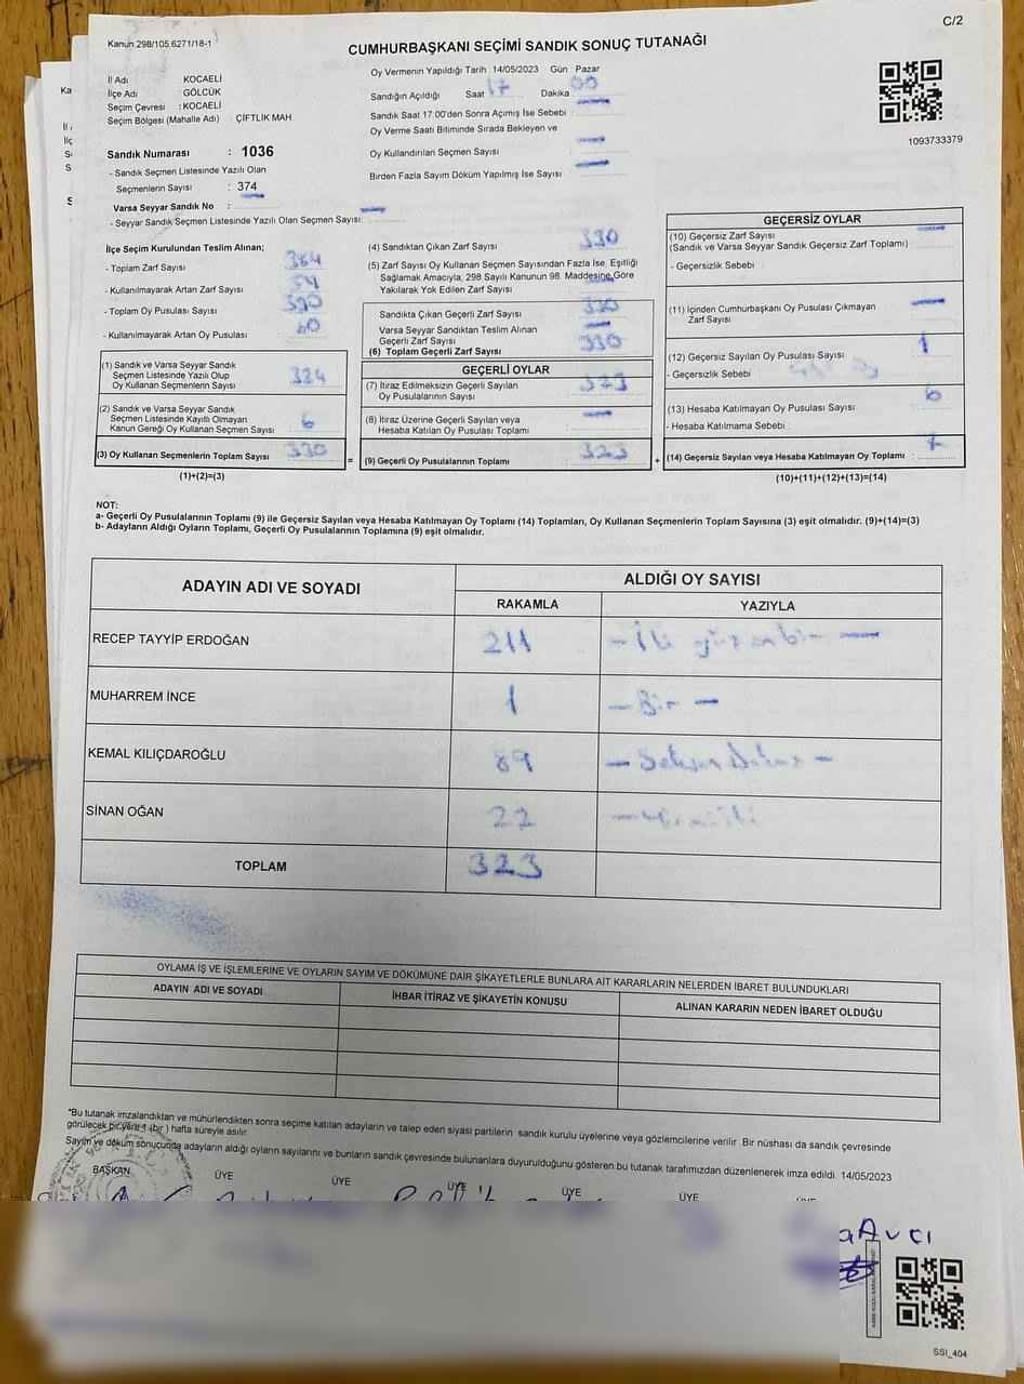 C/2
Kanun 298/105.6271/18-1
CUMHURBAŞKANI SEÇİMİ SANDIK SONUÇ TUTANAĞI
İl Adı KOCAELİ
İlçe Adı GÖLCÜK
Seçim Çevresi : KOCAELİ
Seçim Bölgesi (Mahalle Adı) ÇİFTLİK MAH.
Sandık Numarası : 1036
- Sandık Seçmen Listesinde Yazılı Olan
Seçmenlerin Sayısı : 374
Varsa Seyyar Sandık No :
- Seyyar Sandık Seçmen Listesinde Yazılı Olan Seçmen Sayısı:
Oy Vermenin Yapıldığı Tarih 14/05/2023 Gün Pazar
Sandığın Açıldığı Saat 17 Dakika 00
Sandık Saat 17:00'den Sonra Açımış İse Sebebi
Oy Verme Saati Bitiminde Sırada Bekleyen ve
Oy Kullandırılan Seçmen Sayısı
Birden Fazla Sayım Döküm Yapılmış İse Sayısı
1093733379
İlçe Seçim Kurulundan Teslim Alınan;
- Toplam Zarf Sayısı 384
- Kullanılmayarak Artan Zarf Sayısı 54
- Toplam Oy Pusulası Sayısı
- Kullanılmayarak Artan Oy Pusulası 60
(1) Sandık ve Varsa Seyyar Sandık
Seçmen Listesinde Yazılı Olup
Oy Kullanan Seçmenlerin Sayısı 324
(2) Sandık ve Varsa Seyyar Sandık
Seçmen Listesinde Kayıtlı Olmayan
Kanun Gereği Oy Kullanan Seçmen Sayısı 6
(3) Oy Kullanan Seçmenlerin Toplam Sayısı 330 =
(1)+(2)=(3)
(4) Sandıktan Çıkan Zarf Sayısı 330
(5) Zarf Sayısı Oy Kullanan Seçmen Sayısından Fazla İse, Eşitliği
Sağlamak Amacıyla, 298 Sayılı Kanunun 98. Maddesine Göre
Yakılarak Yok Edilen Zarf Sayısı
Sandıkta Çıkan Geçerli Zarf Sayısı 330
Varsa Seyyar Sandıktan Teslim Alınan
Geçerli Zarf Sayısı
(6) Toplam Geçerli Zarf Sayısı 330
GEÇERLİ OYLAR
(7) İtiraz Edilmeksizin Geçerli Sayılan
Oy Pusulalarının Sayısı 323
(8) İtiraz Üzerine Geçerli Sayılan veya
Hesaba Katılan Oy Pusulası Toplamı
(9) Geçerli Oy Pusulalarının Toplamı 323 +
GEÇERSİZ OYLAR
(10) Geçersiz Zarf Sayısı
(Sandık ve Varsa Seyyar Sandık Geçersiz Zarf Toplamı)
- Geçersizlik Sebebi
(11) İçinden Cumhurbaşkanı Oy Pusulası Çıkmayan
Zarf Sayısı
(12) Geçersiz Sayılan Oy Pusulası Sayısı 1
- Geçersizlik Sebebi
(13) Hesaba Katılmayan Oy Pusulası Sayısı 6
- Hesaba Katılmama Sebebi
(14) Geçersiz Sayılan veya Hesaba Katılmayan Oy Toplamı 7
(10)+(11)+(12)+(13)=(14)
NOT:
a- Geçerli Oy Pusulalarının Toplamı (9) ile Geçersiz Sayılan veya Hesaba Katılmayan Oy Toplamı (14) Toplamları, Oy Kullanan Seçmenlerin Toplam Sayısına (3) eşit olmalıdır. (9)+(14)=(3)
b- Adayların Aldığı Oyların Toplamı, Geçerli Oy Pusulalarının Toplamına (9) eşit olmalıdır.
ADAYIN ADI VE SOYADI ALDIĞI OY SAYISI
RAKAMLA YAZIYLA
RECEP TAYYİP ERDOĞAN 211 - İki yüz onbir -
MUHARREM İNCE 1 - Bir -
KEMAL KILIÇDAROĞLU 89 - Seksen Dokuz -
SİNAN OĞAN 22 - Yirmi iki
TOPLAM 323
OYLAMA İŞ VE İŞLEMLERİNE VE OYLARIN SAYIM VE DÖKÜMÜNE DAİR ŞİKAYETLERLE BUNLARA AİT KARARLARIN NELERDEN İBARET BULUNDUKLARI
ADAYIN ADI VE SOYADI İHBAR İTİRAZ VE ŞİKAYETİN KONUSU ALINAN KARARIN NEDEN İBARET OLDUĞU
*Bu tutanak imzalandıktan ve mühürlendikten sonra seçime katılan adayların ve talep eden siyasi partilerin sandık kurulu üyelerine veya gözlemcilerine verilir. Bir nüshası da sandık çevresinde
görülecek bir yere 1 (bir) hafta süreyle asılır.
Sayım ve döküm sonucunda adayların aldığı oyların sayılarını ve bunların sandık çevresinde bulunanlara duyurulduğunu gösteren bu tutanak tarafımızdan düzenlenerek imza edildi. 14/05/2023
BAŞKAN ÜYE ÜYE ÜYE ÜYE ÜYE
Avcı
SSI_404